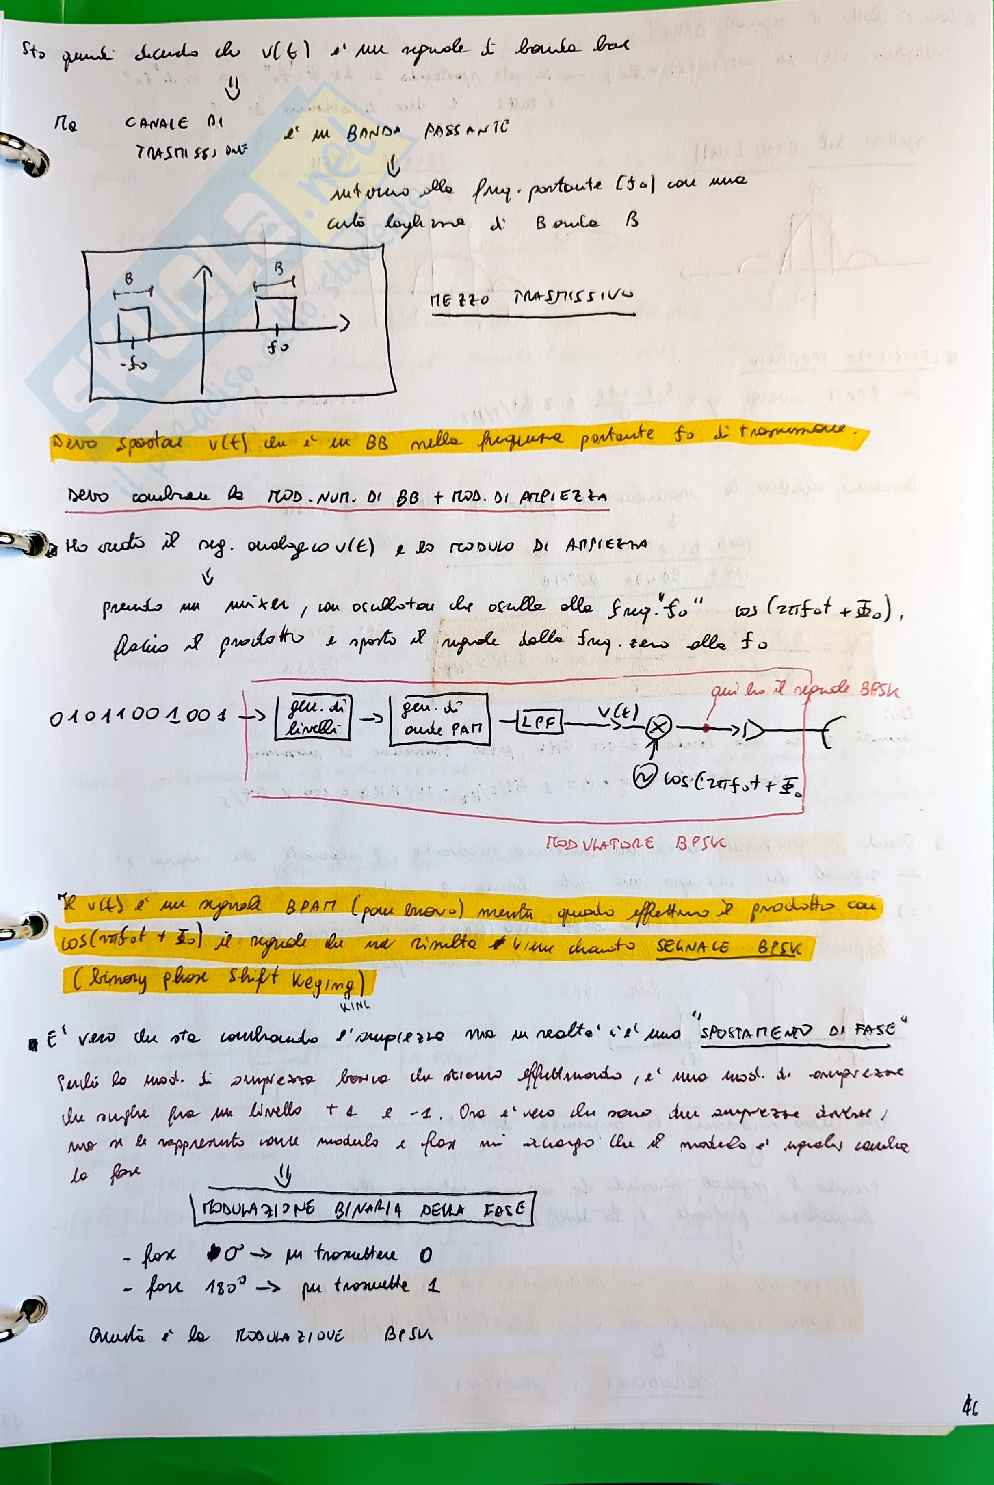 Sto quindi dicendo che v(t) è un segnale di banda base
⇓
Ma CANALE DI TRASMISSIONE è in BANDA PASSANTE
↓
intorno alla freq. portante (f0) con una
certa larghezza di Banda B
B B
-f0 f0
MEZZO TRASMISSIVO
Devo spostare v(t) che è in BB nella frequenza portante f0 di trasmissione.
Devo combinare la MOD. NUM. DI BB + MOD. DI AMPIEZZA
Ho il seg. analogico v(t) e lo MODULO DI AMPIEZZA
⇓
prendo un mixer, con oscillatore che oscilla alla freq. "f0" cos(2πf0t + Φ0),
faccio il prodotto e sposto il segnale dalla freq. zero alla f0
qui ho il segnale BPSK
01011001001 → gen. di livelli → gen. di onde PAM LPF v(t) X
cos(2πf0t + Φ0
MODULATORE BPSK
Il v(t) è un segnale BPAM (pam binario) mentre quando effettuo il prodotto con
cos(2πf0t + Φ0) il segnale che ne risulta viene chiamato SEGNALE BPSK
(binary phase shift keying)
KING
E' vero che sta cambiando l'ampiezza ma in realtà c'è uno "SPOSTAMENTO DI FASE"
Perché la mod. di ampiezza che stiamo effettuando, è una mod. di ampiezza
che sceglie fra un livello +1 e -1. Ora è vero che sono due ampiezze diverse,
ma se le rappresento come modulo e fase mi accorgo che il modulo è uguale cambia
la fase
⇓
MODULAZIONE BINARIA DELLA FASE
- fase 0° → per trasmettere 0
- fase 180° → per trasmette 1
Questa è la MODULAZIONE BPSK
46
SKUOLA.net